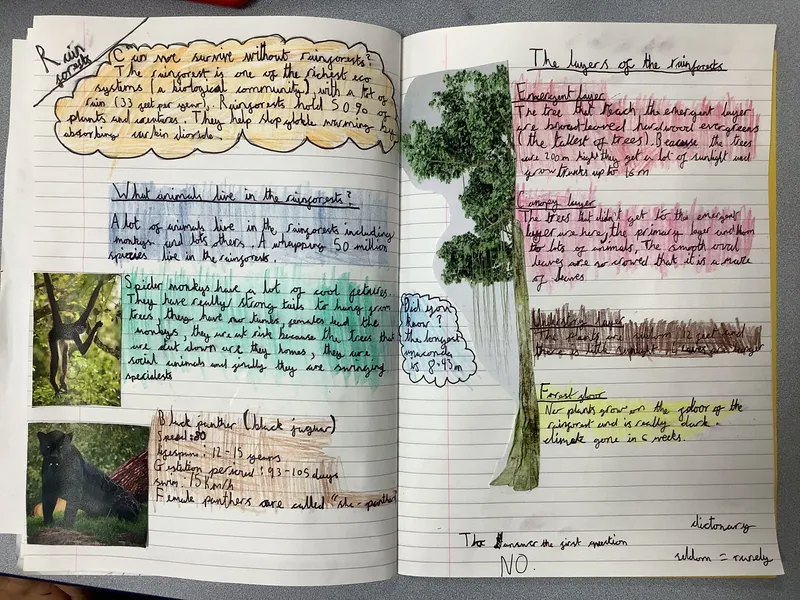 Rain
forests
Can not survive without rainforests?
The rainforest is one of the richest eco
systems (a biological community), with a lot of
rain (33 feet per year). Rainforests hold 50% of
plants and creatures. They help stop globle warming by
absorbing carbin dioxide.
What animals live in the rainforests?
A lot of animals live in the rainforests including
monkeys and lots others. A whapping 50 million
species live in the rainforests.
Spider monkeys have a lot of cool
They have really strong tails to hang from
trees, they have no females lead the
monkeys, they are at risk because the trees that
are cut down are they homes, they are
social animals and they are swinging
specialests
Black panther (black jaguar)
Speed: 80
lifespan: 12-15 years
Gestation period: 93-105 days
swim: 15 Km/h
Female panthers are called "she-panther"
Did you
know?
the longest
anaconda
is 8.45m
The layers of the rainforests
Emergent layer
The tree that reach the emergent layer
are broad-leaved hardwood evergreens
(the tallest of trees). Because the trees
are 200m hight they get a lot of sunlight and
grow trunks up to 16m
Canopy layer
The trees that didn't get to the emergent
layer are here, the primary layer and hom
to lots of animals. The smooth oval
leaves are so crowed that it is a maze
of leaves
layer
The plants are 12 feet and
there is little sunlight
Forest floor
No plants grow on the floor of the
rainforest and is really dark.
climate gone in 6 weeks.
The answer the first question
NO.
dictonary
seldom = rarely